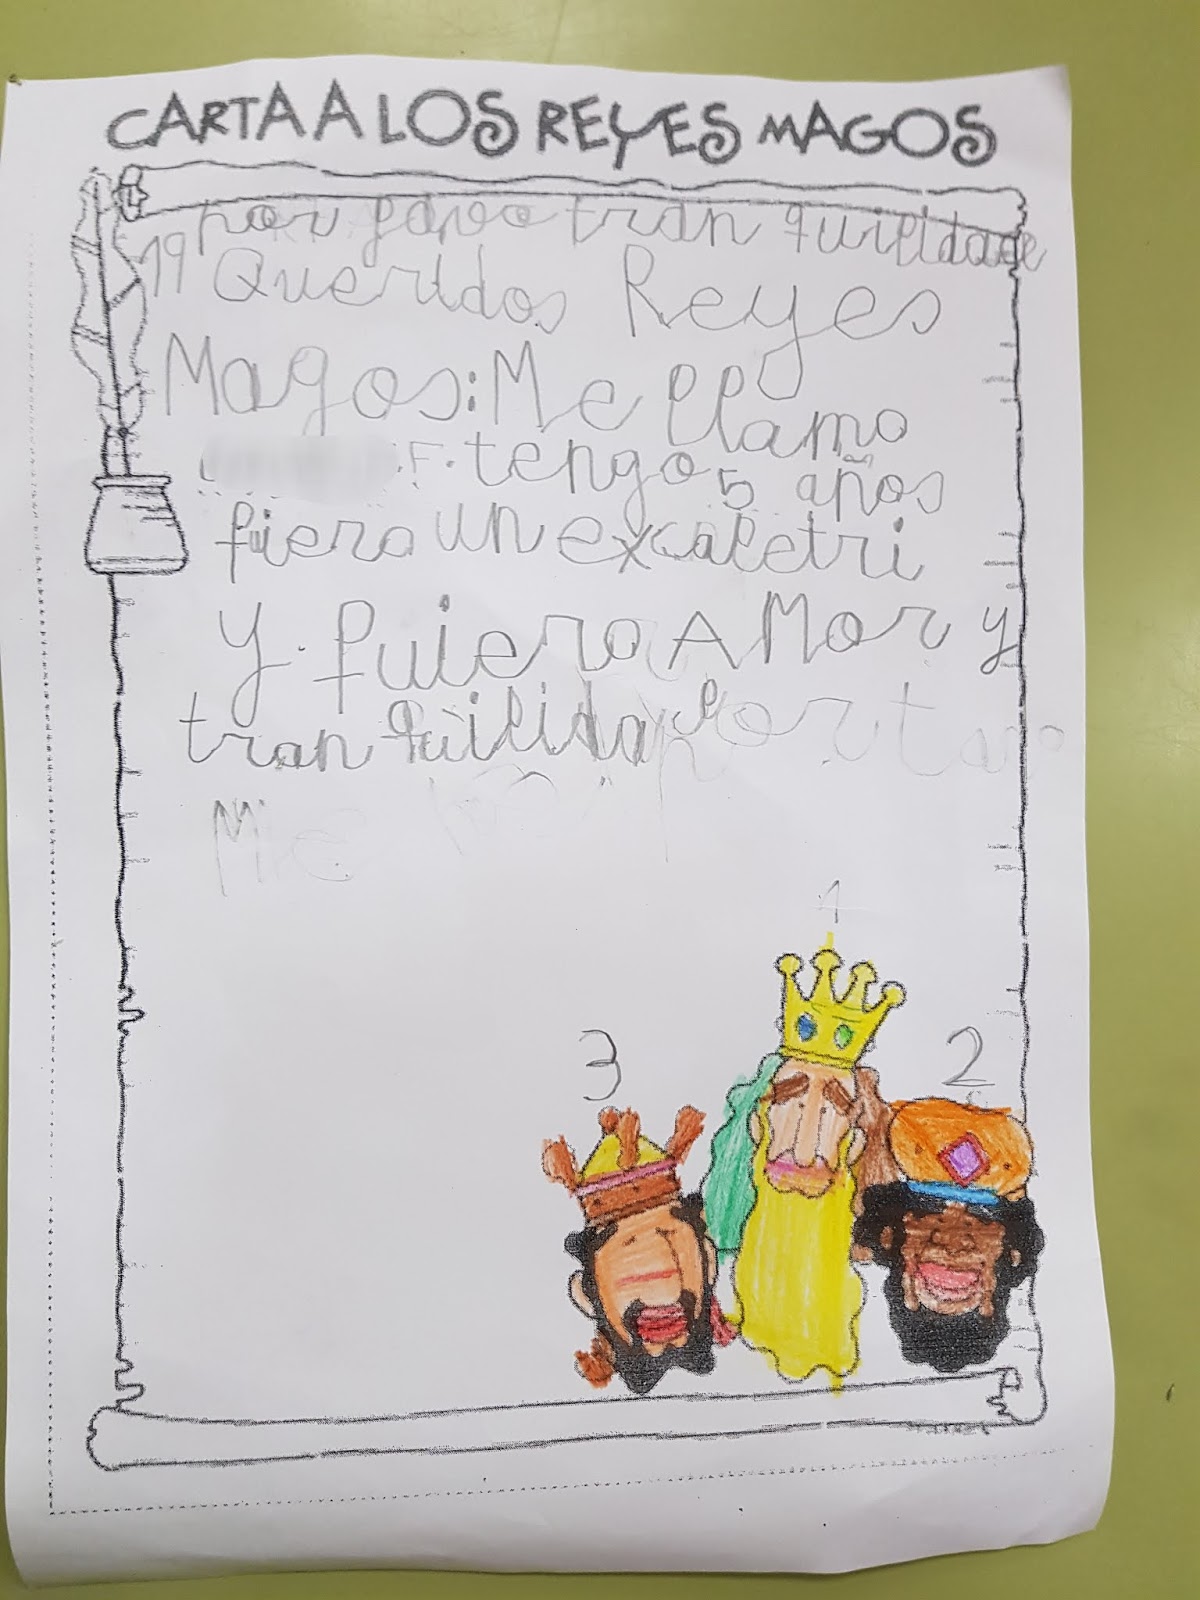 CARTA A LOS REYES MAGOS
por favo tran quilidade
19 Queridos Reyes
Magos: Me llamo
F. tengo 5 años
quiero un excaletri
y. quiero AMor y
tran quilidad
Me
1
3
2